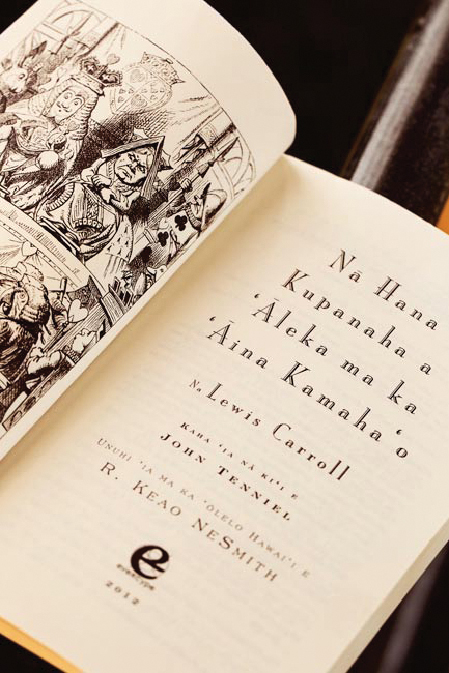 Nā Hana
Kupanaha a
ʻĀleka ma ka
ʻĀina Kamahaʻo
Na Lewis Carroll
Kaha ʻia nā kiʻi e
John Tenniel
Unuhi ʻia ma ka ʻōlelo Hawaiʻi e
R. Keao NeSmith
e
evertype
2012